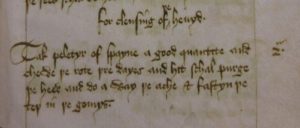 ffor clensing of þe heuyd.
Tak peletyr of spayne a good quantite and
chewe þe rote þre dayes and hit schal purge
þe hede and do a way þe ache & fastyn þe
teþ in þe gomys.